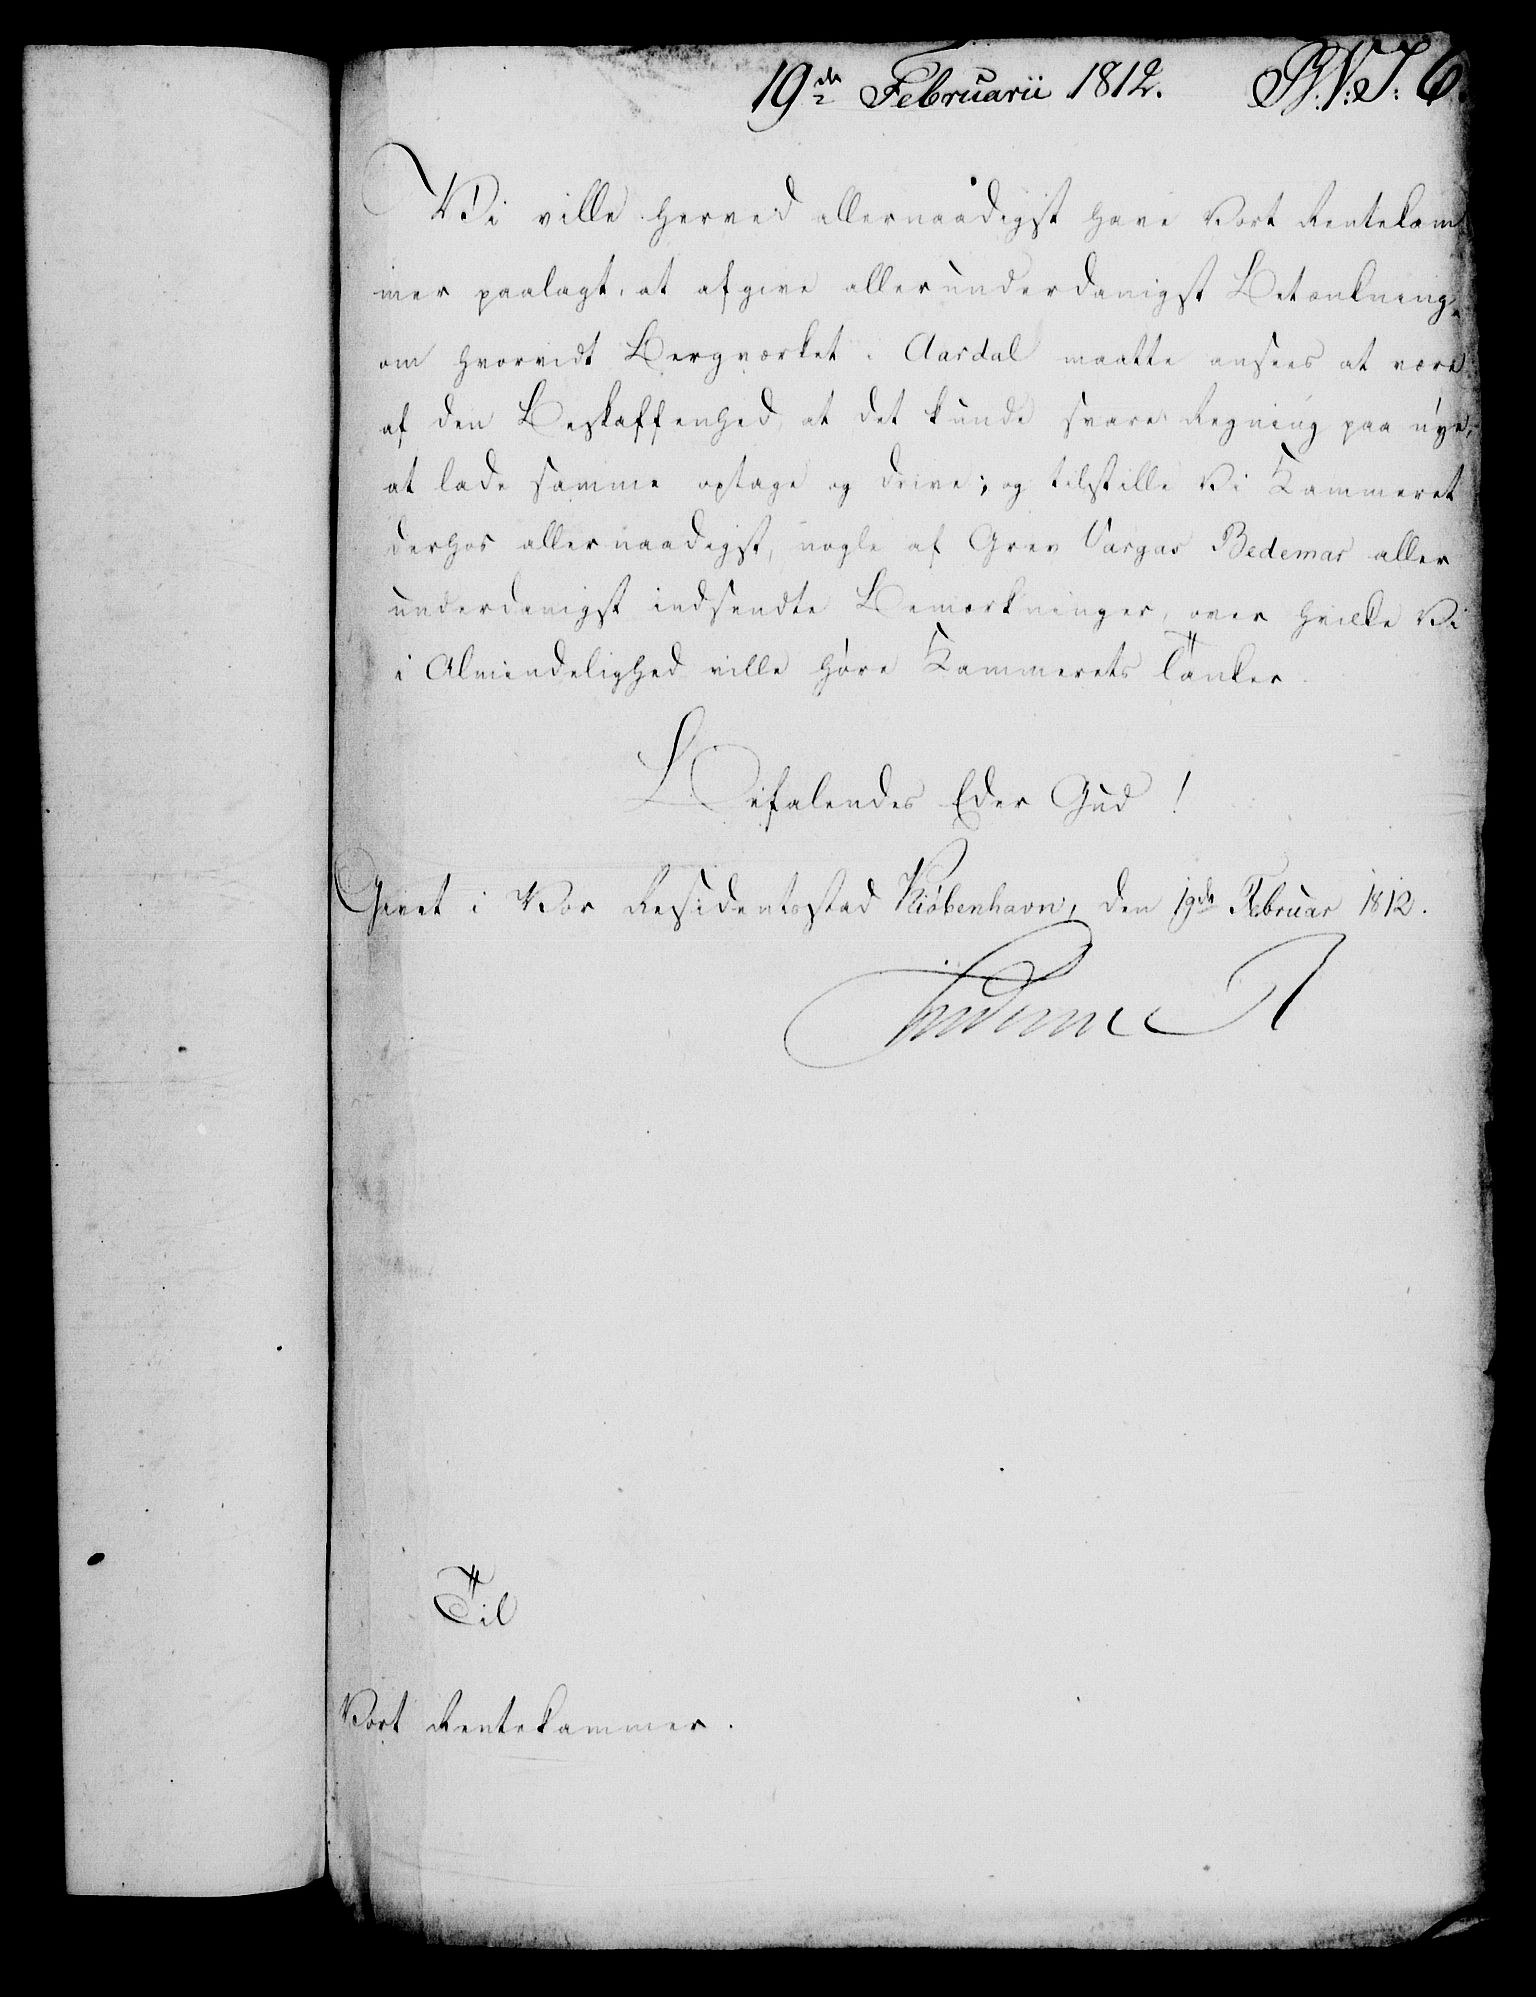 19de Februarii 1812. B.V.J. 6.
Vi ville herved allernaadigst have Vort Rentekam
mer paalagt, at afgive allerunderdanigst Betænkning,
om hvorvidt Bergværket i Aardal maatte ansees at være
af den Beskaffenhed, at det kunde svare Regning paa nye,
at lade samme optage og drive; og tilstille Vi Kammeret
derhos allernaadigst, nogle af Grev Vargas Bedemar aller
underdanigst indsendte Bemærkninger, over hvilke Vi
i Almindelighed ville høre Kammerets Tanker.
Befalendes Eder Gud!
Givet i Vor Residentsstad Kiøbenhavn, den 19de Februar 1812.
Frideric R
Til
Vort Rentekammer.